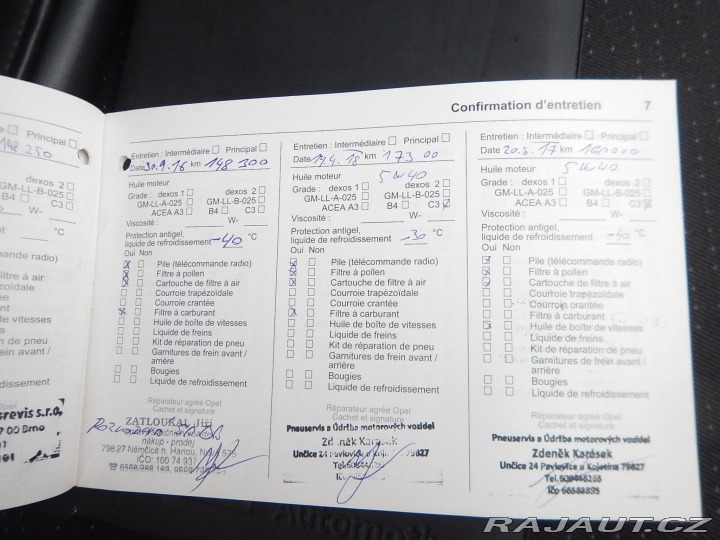 Confirmation d'entretien 7
Principal
148 250
xos 2
-B-025
C3
W-
°C
de radio)
re à air
ale
e vitesses
n de pneu
ein avant /
dissement
Opel
srevis s.r.o.
00 Brno
Entretien : Intermédiaire Principal
Date 30.9.16 km 148 300
Huile moteur
Grade : dexos 1 dexos 2
GM-LL-A-025 GM-LL-B-025
ACEA A3 B4 C3
Viscosité : W-
Protection antigel,
liquide de refroidissement -40 °C
Oui Non
Pile (télécommande radio)
Filtre à pollen
Cartouche de filtre à air
Courroie trapézoïdale
Courroie crantée
Filtre à carburant
Huile de boîte de vitesses
Liquide de freins
Kit de réparation de pneu
Garnitures de frein avant /
arrière
Bougies
Liquide de refroidissement
Réparateur agréé Opel
Cachet et signature
ZATLOUKAL Jiří
nákup - prodej
798 27 Němčice n. Hanou,
IČO: 100 74 937
Entretien : Intermédiaire Principal
Date 19.4.18 km 173 00
Huile moteur 5W40
Grade : dexos 1 dexos 2
GM-LL-A-025 GM-LL-B-025
ACEA A3 B4 C3
Viscosité : W-
Protection antigel,
liquide de refroidissement -30 °C
Oui Non
Pile (télécommande radio)
Filtre à pollen
Cartouche de filtre à air
Courroie trapézoïdale
Courroie crantée
Filtre à carburant
Huile de boîte de vitesses
Liquide de freins
Kit de réparation de pneu
Garnitures de frein avant /
arrière
Bougies
Liquide de refroidissement
Réparateur agréé Opel
Cachet et signature
Pneuservis a Údržba motorových vozidel
Zdeněk Karásek
Unčice 24 Pavlovice u Kojetína 79827
Entretien : Intermédiaire Principal
Date 20.3.17 km 160000
Huile moteur 5W40
Grade : dexos 1 dexos 2
GM-LL-A-025 GM-LL-B-025
ACEA A3 B4 C3
Viscosité : W-
Protection antigel,
liquide de refroidissement -40 °C
Oui Non
Pile (télécommande radio)
Filtre à pollen
Cartouche de filtre à air
Courroie trapézoïdale
Courroie crantée
Filtre à carburant
Huile de boîte de vitesses
Liquide de freins
Kit de réparation de pneu
Garnitures de frein avant /
arrière
Bougies
Liquide de refroidissement
Réparateur agréé Opel
Cachet et signature
Pneuservis a Údržba motorových vozidel
Zdeněk Karásek
Unčice 24 Pavlovice u Kojetína 79827
RAJAUT.CZ